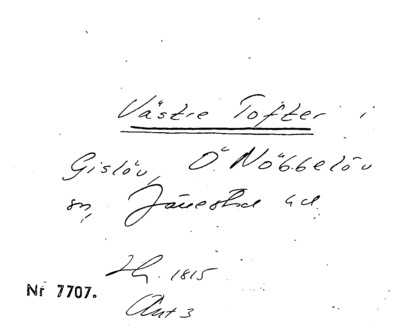 Västre Tofter i
Gislöv, Ö. Nöbbelöv
sn, Järrestad hd.
1815
Nr 7707.
Ant 3